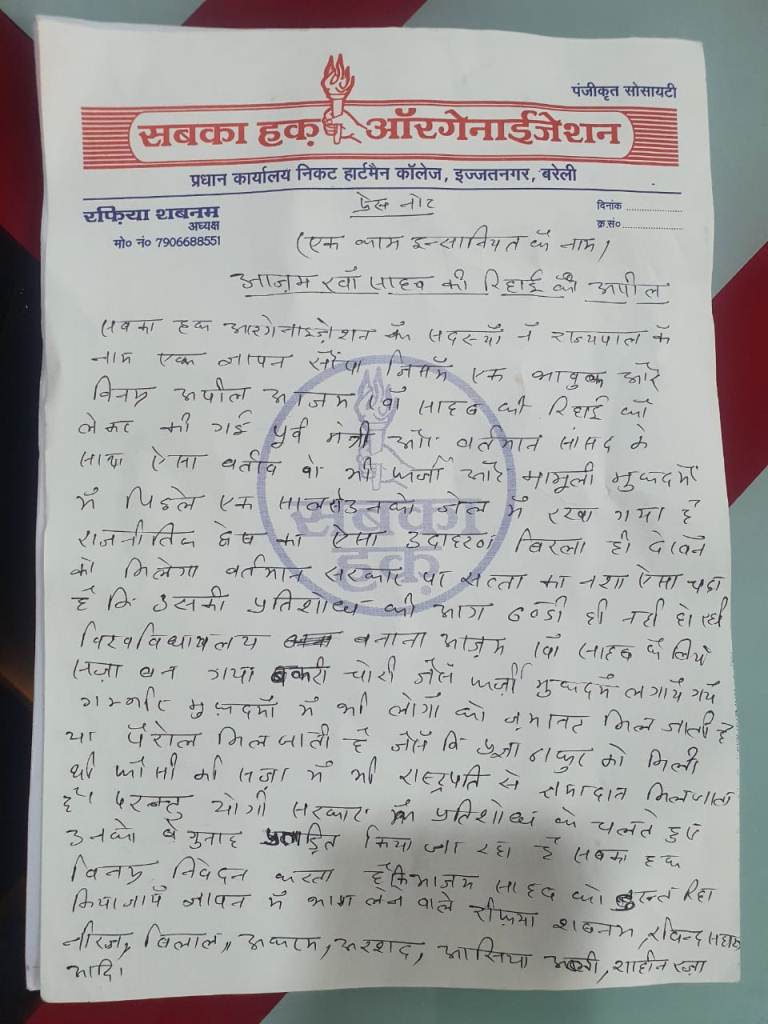 पंजीकृत सोसायटी
सबका हक़ ऑरगेनाईजेशन
प्रधान कार्यालय निकट हार्टमैन कॉलेज, इज्जतनगर, बरेली
रफ़िया शबनम
अध्यक्ष
मो० नं० 7906688551
प्रेस नोट
दिनांक ..................
क्र.सं० ..................
(एक काम इन्सानियत के नाम)
आज़म खाँ साहब की रिहाई की अपील
सबका हक आरगेनाइज़ेशन के सदस्यों ने राज्यपाल के
नाम एक ज्ञापन सौंपा जिसमें एक भावुक और
विनम्र अपील आजम खाँ साहब की रिहाई को
लेकर की गई पूर्व मंत्री और वर्तमान सांसद के
साथ ऐसा बर्ताव वो भी फर्जी और मामूली मुकदमों
में पिछले एक साल से उनको जेल में रखा गया है
राजनीतिक द्वेष का ऐसा उदाहरण बिरला ही देखने
को मिलेगा वर्तमान सरकार पर सत्ता का नशा ऐसा चढ़ा
है कि उसकी प्रतिशोध की आग ठण्डी ही नही हो रही
विश्वविधायलय बनाना आज़म खाँ साहब के लिये
सज़ा बन गया बकरी चोरी जैसे फर्ज़ी मुकदमें लगाये गये
गम्भीर मुक़दमों में भी लोगों को ज़मानत मिल जाती है
या पैरोल मिल जाती है जैसे कि प्रज्ञा ठाकुर को मिली
थी फाँसी की सज़ा में भी राष्ट्रपति से क्षमादान मिल जाता
है। परन्तु योगी सरकार के प्रतिशोध के चलते हुए
उनको बेगुनाह प्रताड़ित किया जा रहा है सबका हक
विनम्र निवेदन करता है कि आजम साहब को तुरन्त रिहा
किया जाये ज्ञापन में भाग लेने वाले रफ़िया शबनम, रविन्द्र सहाय
नीरज, बिलाल, अकरम, अरशद, आसिया अली, शाहीन रज़ा
आदि।
सबका
हक़